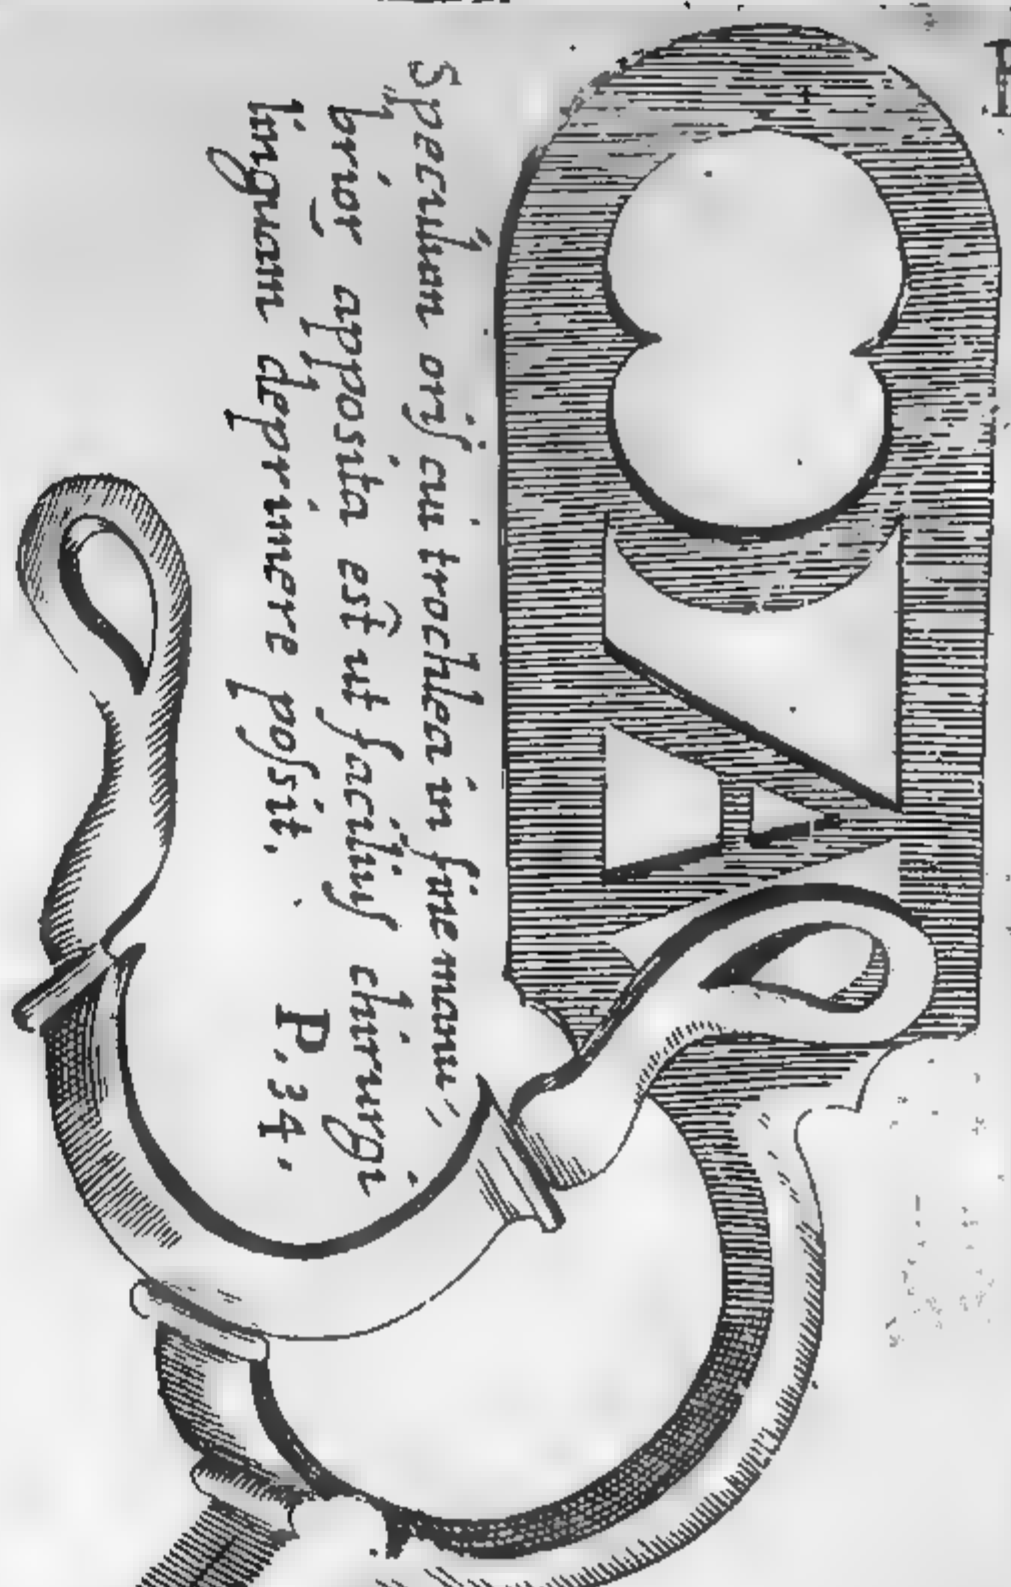 Speculum oris cui trochlea in fine manu,,
brior̄ apposita est ut facilius chirurgi
linguam deprimere possit. P. 34.